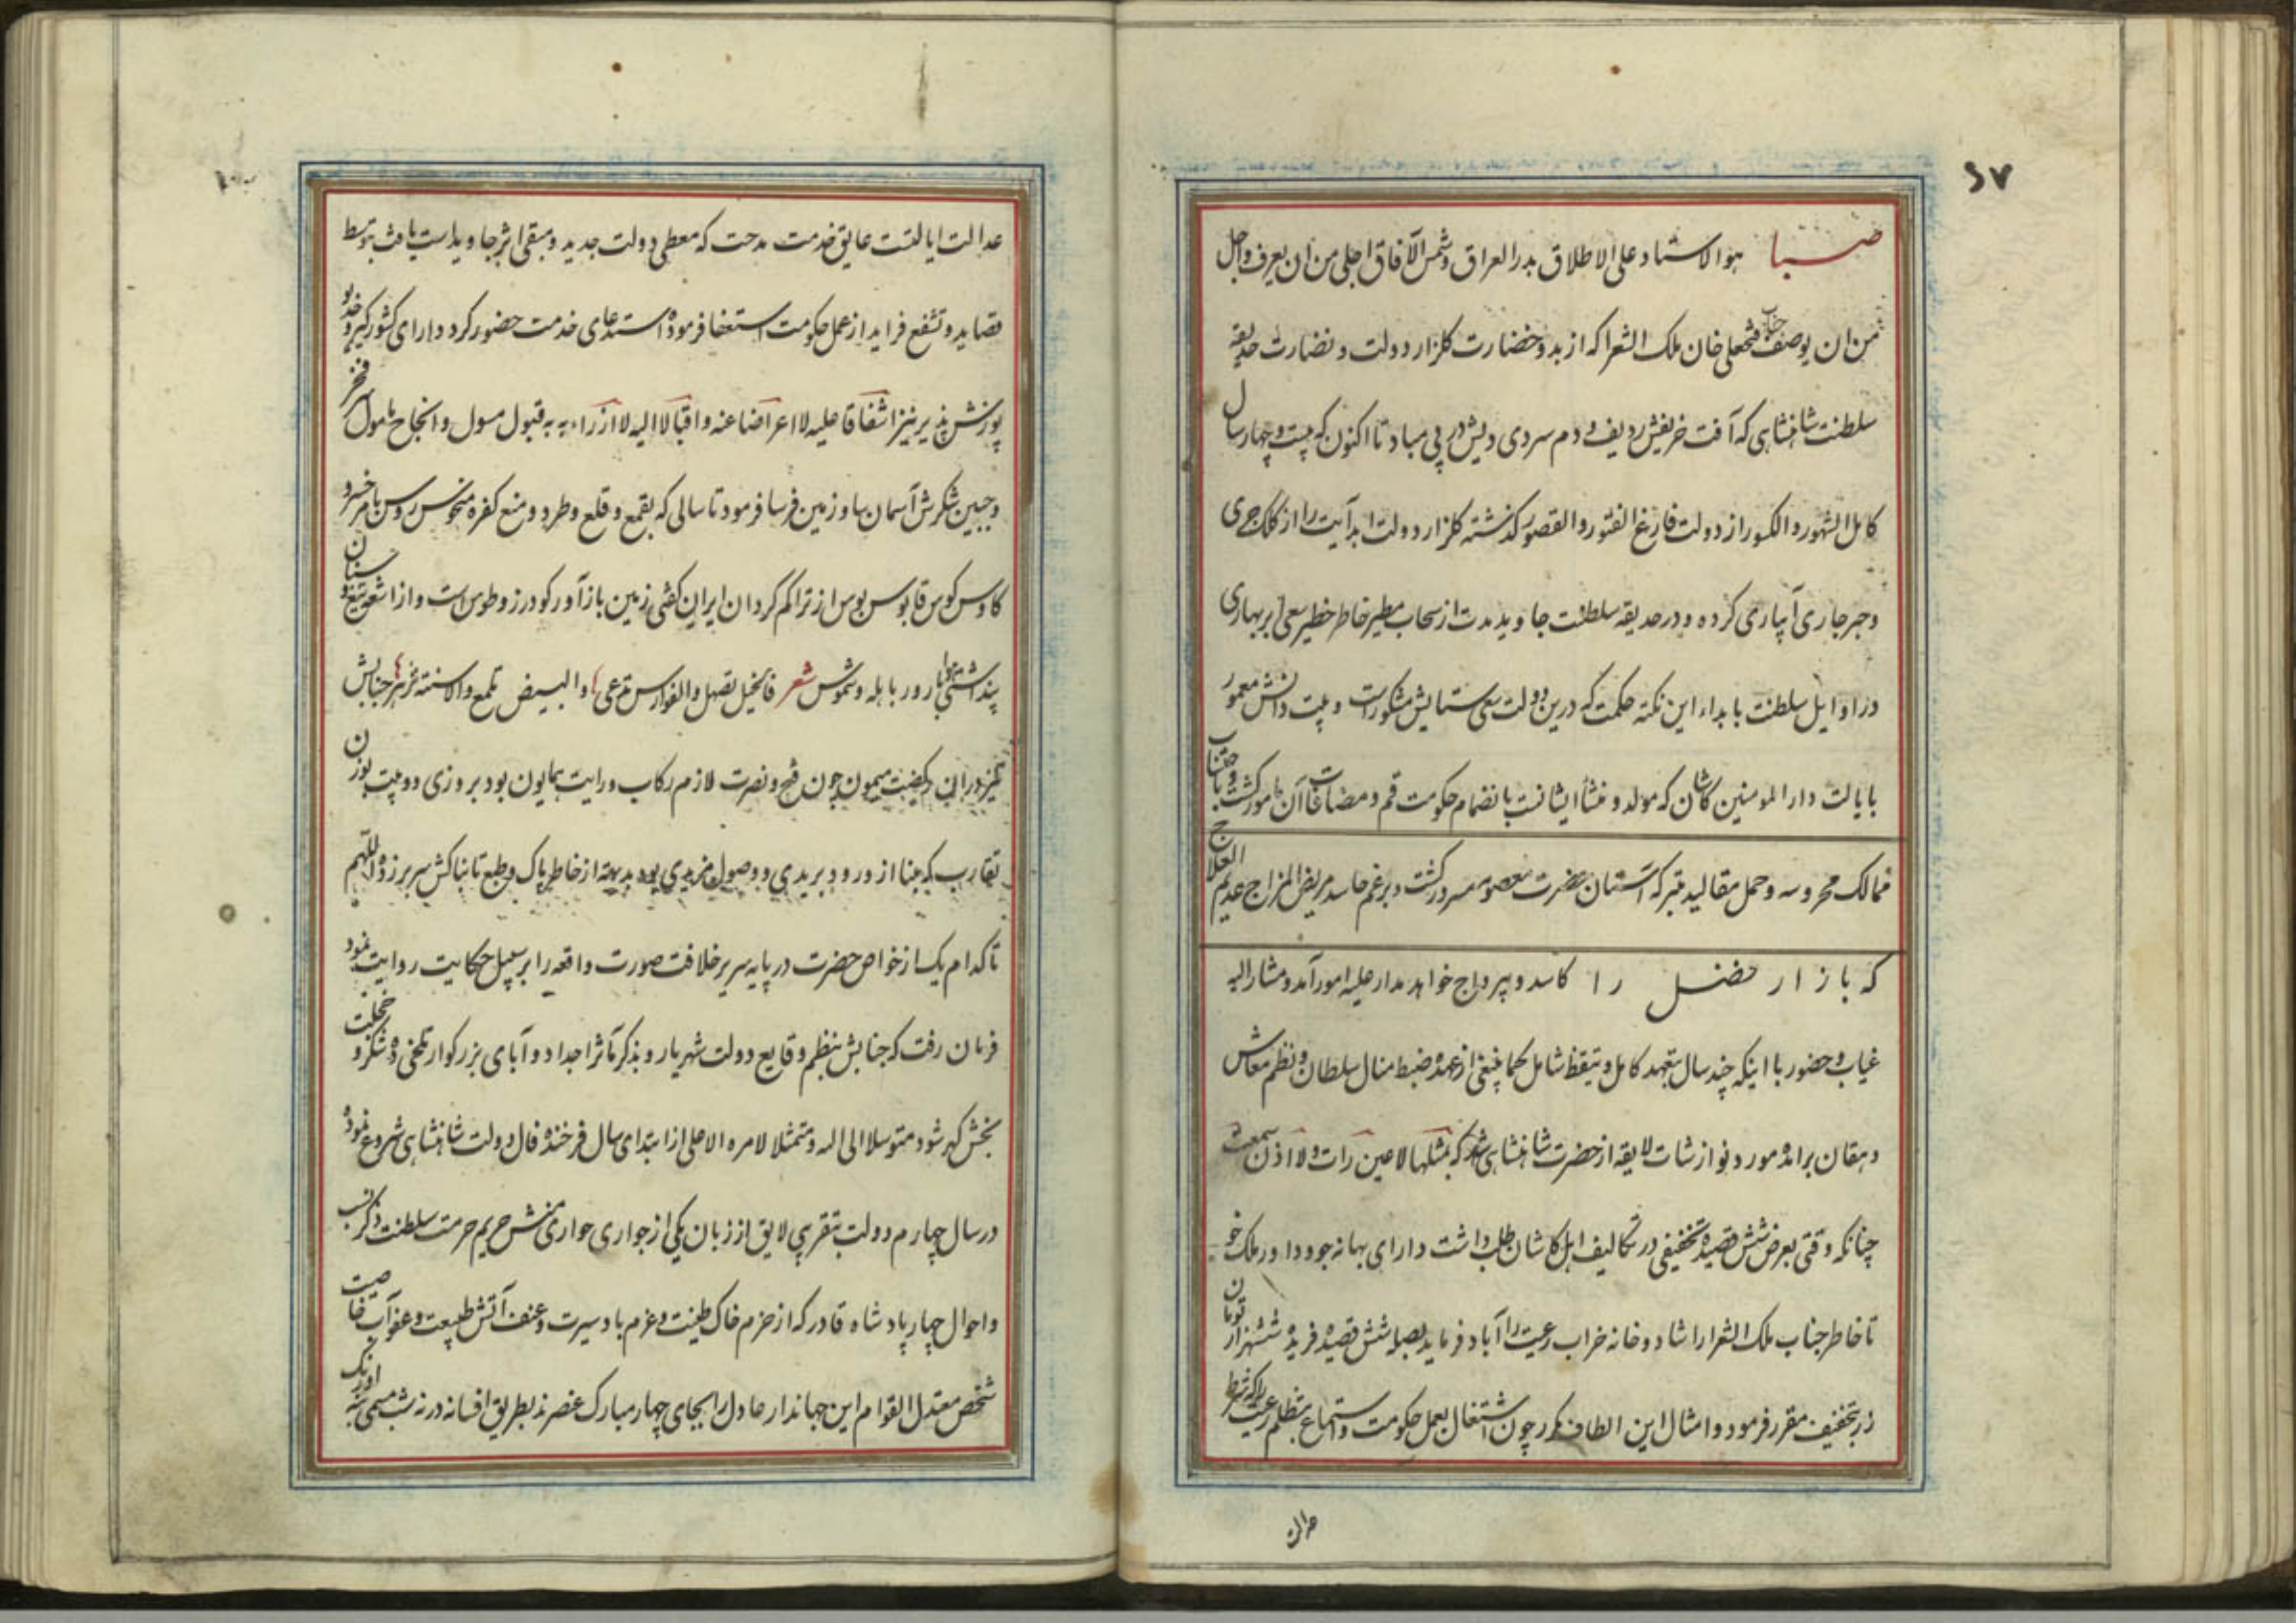 ۶۷
صبا هو الاستاد علی الاطلاق بدر العراق و شمس الآفاق اجلی من ان یعرف و اجل
من ان یوصف جناب فتحعلی خان ملک الشعرا که از بدو خضارت کلزار دولت و نضارت حدیقه
سلطنت شاهنشاهی که آفت خریفش ردیف و دم سردی دیش در پی مباد تا اکنون که بیست و چهار سال
کامل الشهور و الکسور از دولت فارغ الفتور و القصور کذشته کلزار دولت ابد آیت را از کلک جری
و حبر جاری آبیاری کرده و در حدیقه سلطنت جاوید مدت از سحاب مطیر خاطر خطیر سعی ابر بهاری
در اوایل سلطنت بابداء این نکته حکمت که درین دولت سعی ستایش مشکور است و بیت دانش معمور
بایالت دار المومنین کاشان که مولد و منشأ ایشانست بانضمام حکومت قم و مضافات آن مامور کشت
ممالک محروسه و حمل مقالید متبرکه آستان حضرت معصومه سرور کشت و برغم حاسد مریض المزاج عدیم العلاج
که بازار فضل را کاسد و بیرواج خواهد مدار علیه امور آمد و مشار الیه
غیاب و حضور با اینکه چند سال بتعهد کامل و تیقظ شامل کما ینبغی از عهده ضبط منال سلطان و نظم معاش
دهقان برآمده مورد نوازشات لایقه از حضرت شاهنشاهی شد که بمثلها لا عین رات و لا اذن سمعت
چنانکه وقتی بعرض شش قصیده تخفیفی در تکالیف اهل کاشان طلب داشت دارای بهانه جو و داور ملک خو
تا خاطر جناب ملک الشعرا را شاد و خانه خراب رعیت را آباد فرماید بصله شش قصیده فریده ششهزار تومان
زر بتخفیف مقرر فرمود و امثال این الطاف مکرر چون اشتغال بعمل حکومت و استماع تظلم رعیت را که شرط
عدالت
عدالت ایالتست عایق خدمت مدحت که معطی دولت جدید و مبقی اثر جاوید است یافت بتوسط
قصاید و تشفع فراید از عمل حکومت استعفا فرموده استدعای خدمت حضور کرد دارای کشورکیر و خدیو
پوزش پذیر نیز اشفاقا علیه لا اعراضا عنه و اقبالا الیه لا ازراء به بقبول مسول و انجاح مامول سرفخر
و جبین شکرش آسمان سا و زمین فرسا فرمود تا سالی که بقمع و قلع و طرد و منع کفره منحوس روس بامر خسرو
کاوس کوس قابوس بوس از تراکم کردان ایران کفتی زمین باز آور کودرز و طوس است و از اشعه تیغ و سنان
پنداشتی هوا بارور باهله و شموس شعر فالخیل تصهل و الفوارس تدعی و البیض تلمع و الاسنة تزهر جنابش
نیز در این رکضت میمون چون فتح و نصرت لازم رکاب و رایت همایون بود بروزی دو بیت بوزن
تقارب که مبنا از ورود بریدی و وصول مزیدی بود بدیهة از خاطر پاک و طبع تابناکش سر بر زده اللهم
تا کدام یک از خواص حضرت در پایه سریر خلافت صورت واقعه را بر سبیل حکایت روایت نمود
فرمان رفت که جنابش بنظم وقایع دولت شهریار و بذکر مآثر اجداد و آبای بزرکوار تلخی ده شکر و خجلت
بخش کهر شود متوسلا الی اله و متمثلا لامره الاعلی از ابتدای سال فرخنده فال دولت شاهنشاهی شروع نموده
در سال چهارم دولت بتقریبی لایق از زبان یکی از جواری حواری منش حریم حرمت سلطنت ذکر نسب
و احوال چهار پادشاه قادر که از حزم خاک طینت و عزم باد سیرت و عنف آتش طبیعت و عفو آب خاصیت
شخص معتدل القوام این جهاندار عادل را بجای چهار مبارک عنصرند بطریق افسانه در نه شب مسمی به اورنک